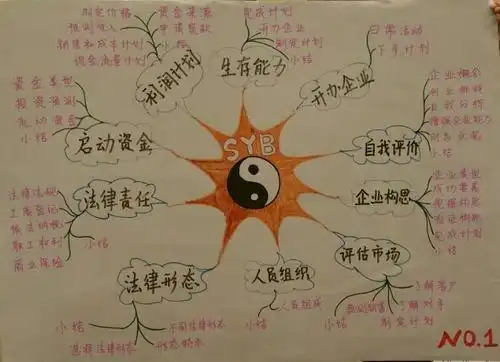 制定价格
预测收入
销售和成本计划
现金流量计划
利润计划
资金来源
申请贷款
小结
完成计划
开办企业
制定计划
小结
生存能力
日常活动
下步计划
开办企业
SYB
企业概念
创业群体
自我分析
增强企业能力
小结
自我评价
企业类型
成功要素
挖掘构思
验证构思
完成计划
小结
企业构思
了解客户
了解对手
制定计划
预测销售
小结
评估市场
人员组成
小结
人员组织
不同法律形态
形态特点
选择法律形态
小结
法律形态
法律法规
工商登记
依法纳税
职工权利
商业保险
小结
法律责任
资金类型
投资预测
流动资金
小结
启动资金
NO.1